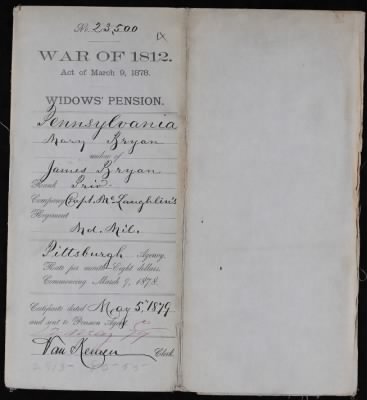 No. 23,500
WAR OF 1812.
Act of March 9, 1878.
WIDOWS' PENSION.
Pennsylvania
Mary Bryan
widow of
James Bryan
Rank Priv.
Company Capt. McLaughlin's
Regiment
Md. Mil.
Pittsburgh Agency.
Rate per month Eight dollars.
Commencing March 9, 1878.
Certificate dated May 5, 1879
and sent to Pension Agent
Clerk.